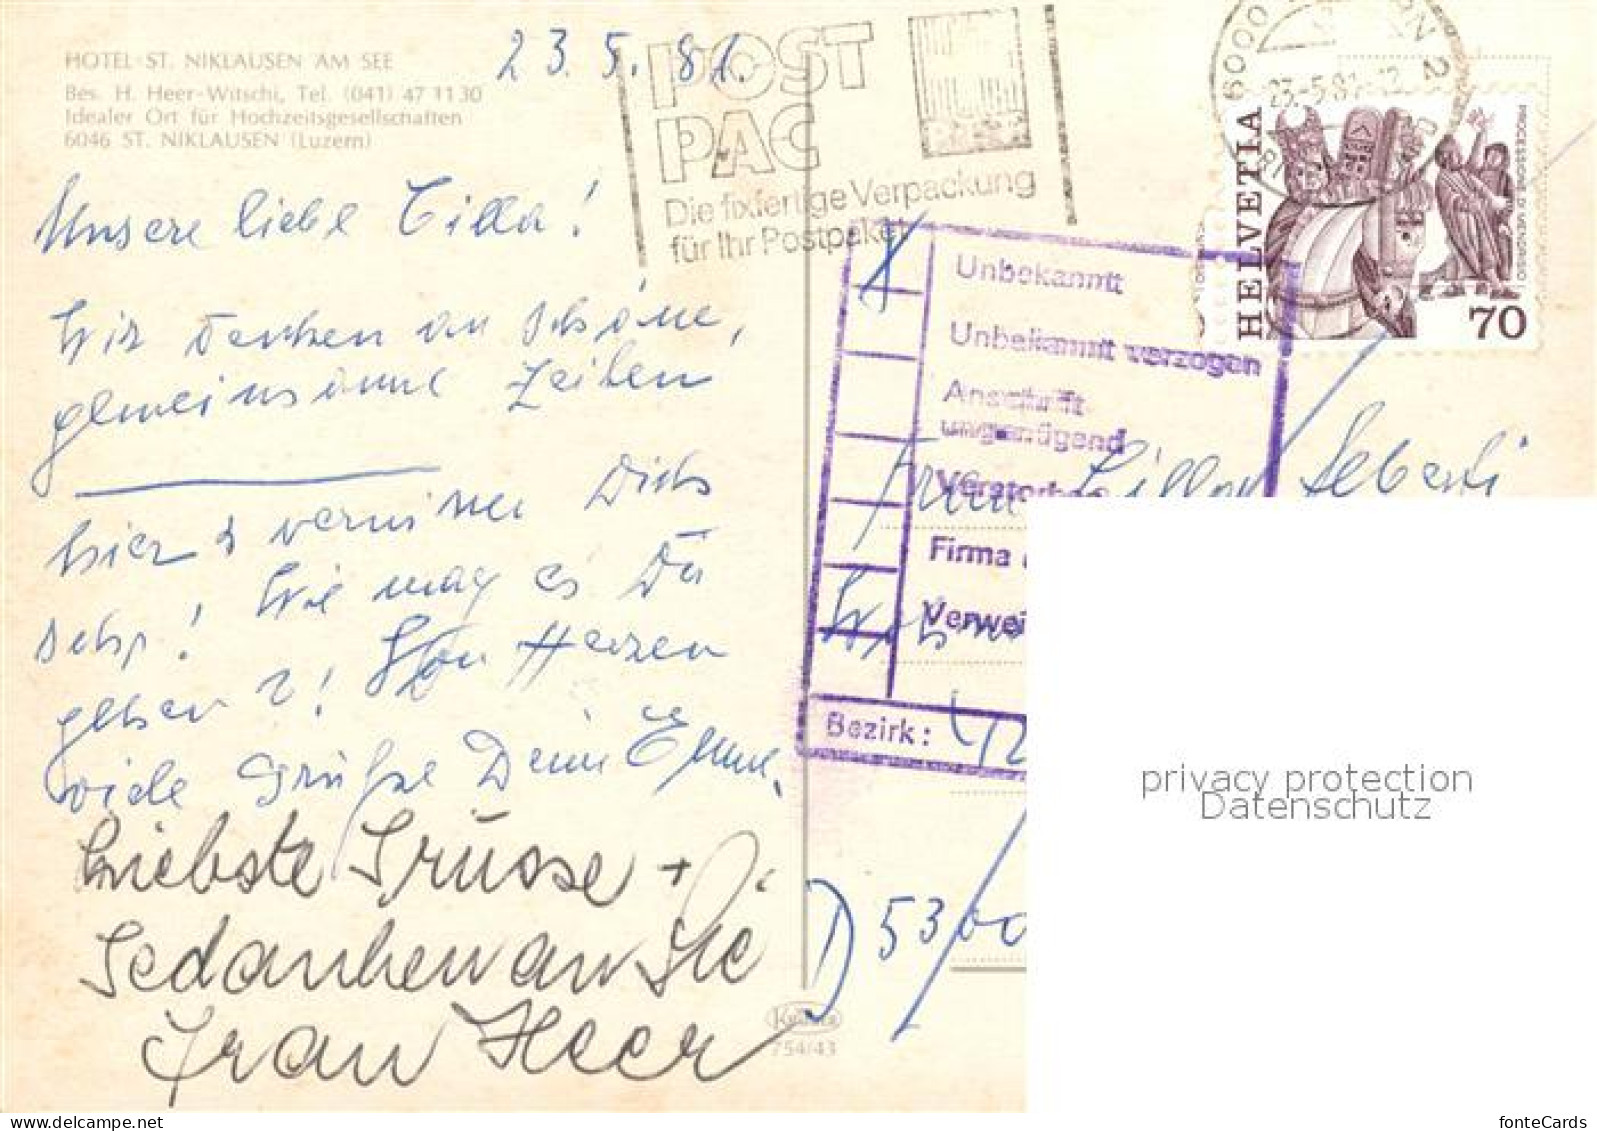 HOTEL ST. NIKLAUSEN AM SEE
Bes. H. Heer-Witschi, Tel. (041) 47 11 30
Idealer Ort für Hochzeitsgesellschaften
6046 ST. NIKLAUSEN (Luzern)
23.5.81.
POST
PAC
Die fixfertige Verpackung
für Ihr Postpaket
6000 LUZERN 2
23.-5.81-12
HELVETIA
PROCESSIONE DI MENDRISIO
70
Unsere liebe Cilla!
Wir denken an schöne,
gemeinsame Zeiten
hier & vermissen Dich
sehr! Wie mag es Dir
gehen?! Von Herzen
viele Grüsse Deine
Liebste Grüsse +
Gedanken an Sie
Frau Heer
Unbekannt
Unbekannt verzogen
Anschrift
ungenügend
Verstorben
Firma
Verwei
Bezirk:
Frau Cilla
D 5300
754/43
privacy protection
Datenschutz
fonteCards